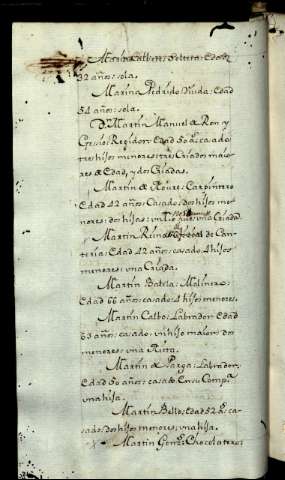 Maria Albert: Soltera: Edad
32 años: sola.
Marina Pedrido Viuda: Edad
54 años: sola.
Dn. Martin Manuel de Ron y
Rexidor: Edad 50 as. casado
tres hijos menores: tres Criados maio
res de Edad, y dos Criadas.
Martin de Carpintero
Edad 42 años: Casado: dos hijos me
nores: dos hijas: un Criada.
Martin de Can-
teria: Edad 42 años: casado: 4 hijos
menores: vna Criada.
Martin Batela: Molinero:
Edad 66 años: casado: 4 hijos menores.
Martin Calbo: Labrador: Edad
65 años: casado: vn hijo maior: dos
menores: vna Nieta.
Martin de Parga: Labrador:
Edad 50 años: casado En su Compa.
vna hija.
Martin Bello: Edad 52 as. ca-
sado: dos hijos menores: vna hija.
Martin Gomz. Chocolatero: